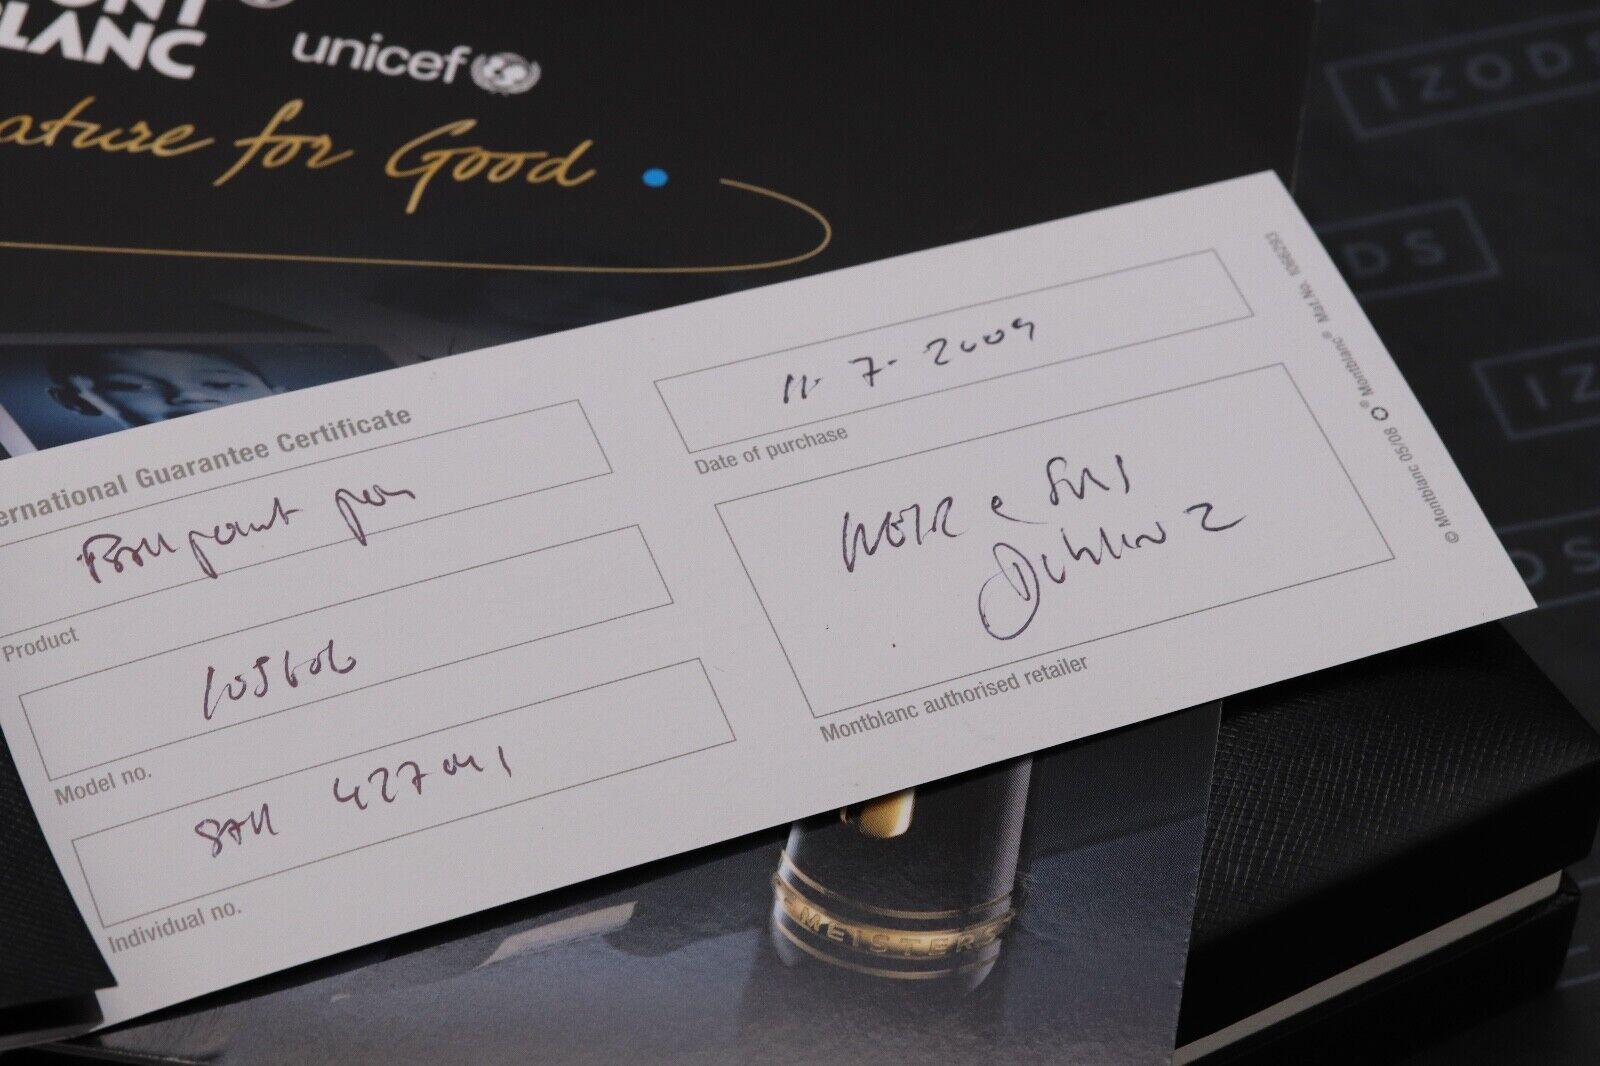 ONT
BLANC
unicef
ature for Good
IZODS
DS
IZ
DS
ernational Guarantee Certificate
Ballpoint pen
Product
105606
Model no.
427
Individual no.
11-7-2009
Date of purchase
WEIR & SONS
Montblanc authorised retailer
© Montblanc 05/08 ® Montblanc® Mat.No. 1066293
MEISTERS